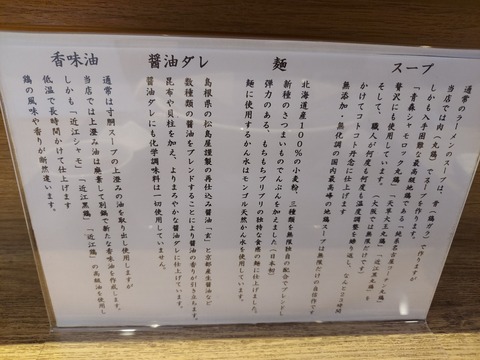 スープ
通常のラーメンのスープは、骨（鶏ガラ）で作りますが
当店では肉（丸鶏）でスープを作ります。
しかも入手困難な最高級地鶏である「純系名古屋コーチン丸鶏」
「青森シャモロック丸鶏」「天草大王丸鶏」「近江黒丸鶏」を
贅沢にも使用してます。（大阪では無限だけです）
そして、職人が何度も何度も温度調整を繰り返し、なんと１３時間
かけてコトコト丹念に仕上げます
無添加・無化調の国内最高峰の地鶏スープは無限だけの自信作です
麺
北海道産１００％の小麦粉、三種類を無限独自の配合でブレンドし
新種のさつまいものでんぷんを加えました（日本初）
弾力のある、もちもちプリプリの独特な食感の麺に仕上げました。
麺に使用するかん水はモンゴル天然かん水を使用しています。
醤油ダレ
島根県の松島屋謹製の再仕込み醤油「玄」と京都産生醤油など
数種類の醤油をブレンドすることにより醤油の香りが引き立ちます。
昆布や貝柱を加え、よりまろやかな醤油ダレに仕上げています。
醤油ダレにも化学調味料は一切使用していません。
香味油
通常は寸胴スープの上澄みの油を取り出し使用しますが
当店では上澄み油は廃棄して別鍋で新たな香味油を作成します。
しかも「近江シャモ」「近江黒鶏」「近江鶏」の高級油を使用し
低温で長時間かけて仕上げます
鶏の風味や香りが断然違います。